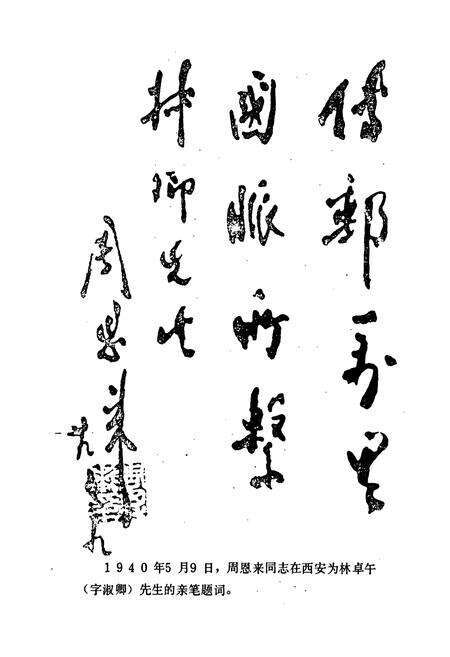 傳郵万里
國脈所繫
林卿先生
周恩来
廿九 五 九
1940年5月9日，周恩来同志在西安为林卓午
（字淑卿）先生的亲笔题词。